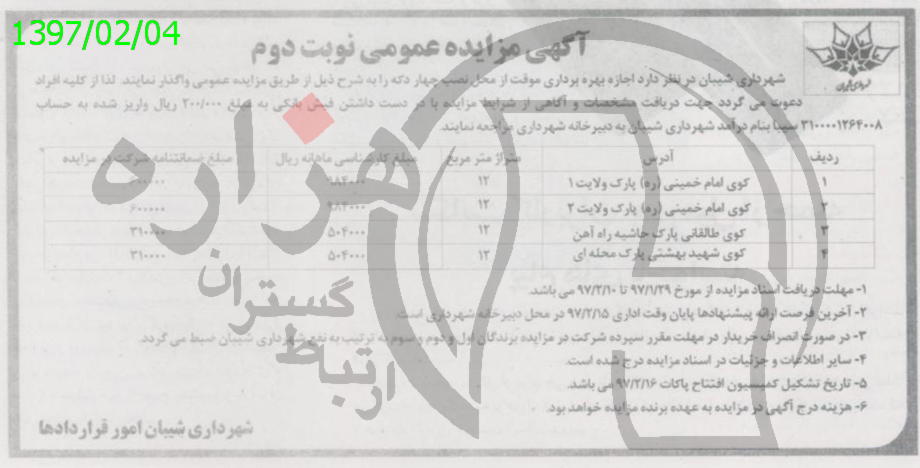 1397/02/04
آگهی مزایده عمومی نوبت دوم
شهرداری شیبان در نظر دارد اجازه بهره برداری موقت از محل نصب چهار دکه را به شرح ذیل از طریق مزایده عمومی واگذار نمایند. لذا از کلیه افراد
دعوت می گردد جهت دریافت مشخصات و آگاهی از شرایط مزایده با در دست داشتن فیش بانکی به مبلغ ۲۰۰/۰۰۰ ریال واریز شده به حساب
۳۱۰۰۰۰۱۲۶۴۰۰۸ سیبا بنام درآمد شهرداری شیبان به دبیرخانه شهرداری مراجعه نمایند.
ردیف آدرس متراژ متر مربع مبلغ کارشناسی ماهانه ریال مبلغ ضمانتنامه شرکت در مزایده
۱ کوی امام خمینی (ره) پارک ولایت ۱ ۱۲ ۹۸۴۰۰۰ ۶۰۰۰۰۰
۲ کوی امام خمینی (ره) پارک ولایت ۲ ۱۲ ۹۸۴۰۰۰ ۶۰۰۰۰۰
۳ کوی طالقانی پارک حاشیه راه آهن ۱۲ ۵۰۴۰۰۰ ۳۱۰۰۰۰
۴ کوی شهید بهشتی پارک محله ای ۱۲ ۵۰۴۰۰۰ ۳۱۰۰۰۰
۱- مهلت دریافت اسناد مزایده از مورخ ۹۷/۱/۲۹ تا ۹۷/۲/۱۰ می باشد.
۲- آخرین فرصت ارائه پیشنهادها پایان وقت اداری ۹۷/۲/۱۵ در محل دبیرخانه شهرداری است.
۳- در صورت انصراف خریدار در مهلت مقرر سپرده شرکت در مزایده برندگان اول و دوم و سوم به ترتیب به نفع شهرداری شیبان ضبط می گردد.
۴- سایر اطلاعات و جزئیات در اسناد مزایده درج شده است.
۵- تاریخ تشکیل کمیسیون افتتاح پاکات ۹۷/۲/۱۶ می باشد.
۶- هزینه درج آگهی در مزایده به عهده برنده مزایده خواهد بود.
شهرداری شیبان امور قراردادها
هزاره
گستران
ارتباط